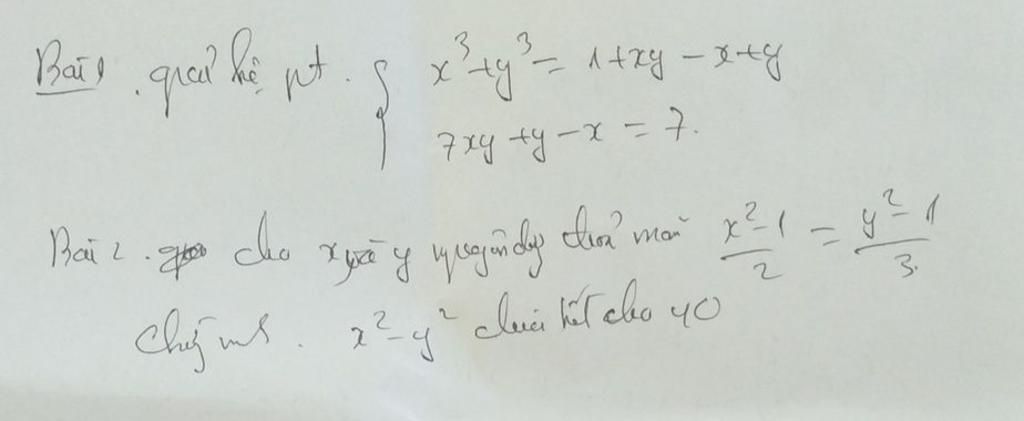 Bài 1. giải hệ pt. { x³+y³ = 1+xy - x+y
7xy +y - x = 7.
Bài 2. cho x và y nguyên dg thoả mãn (x²-1)/2 = (y²-1)/3.
Chứg m. x²-y² chia hết cho 40